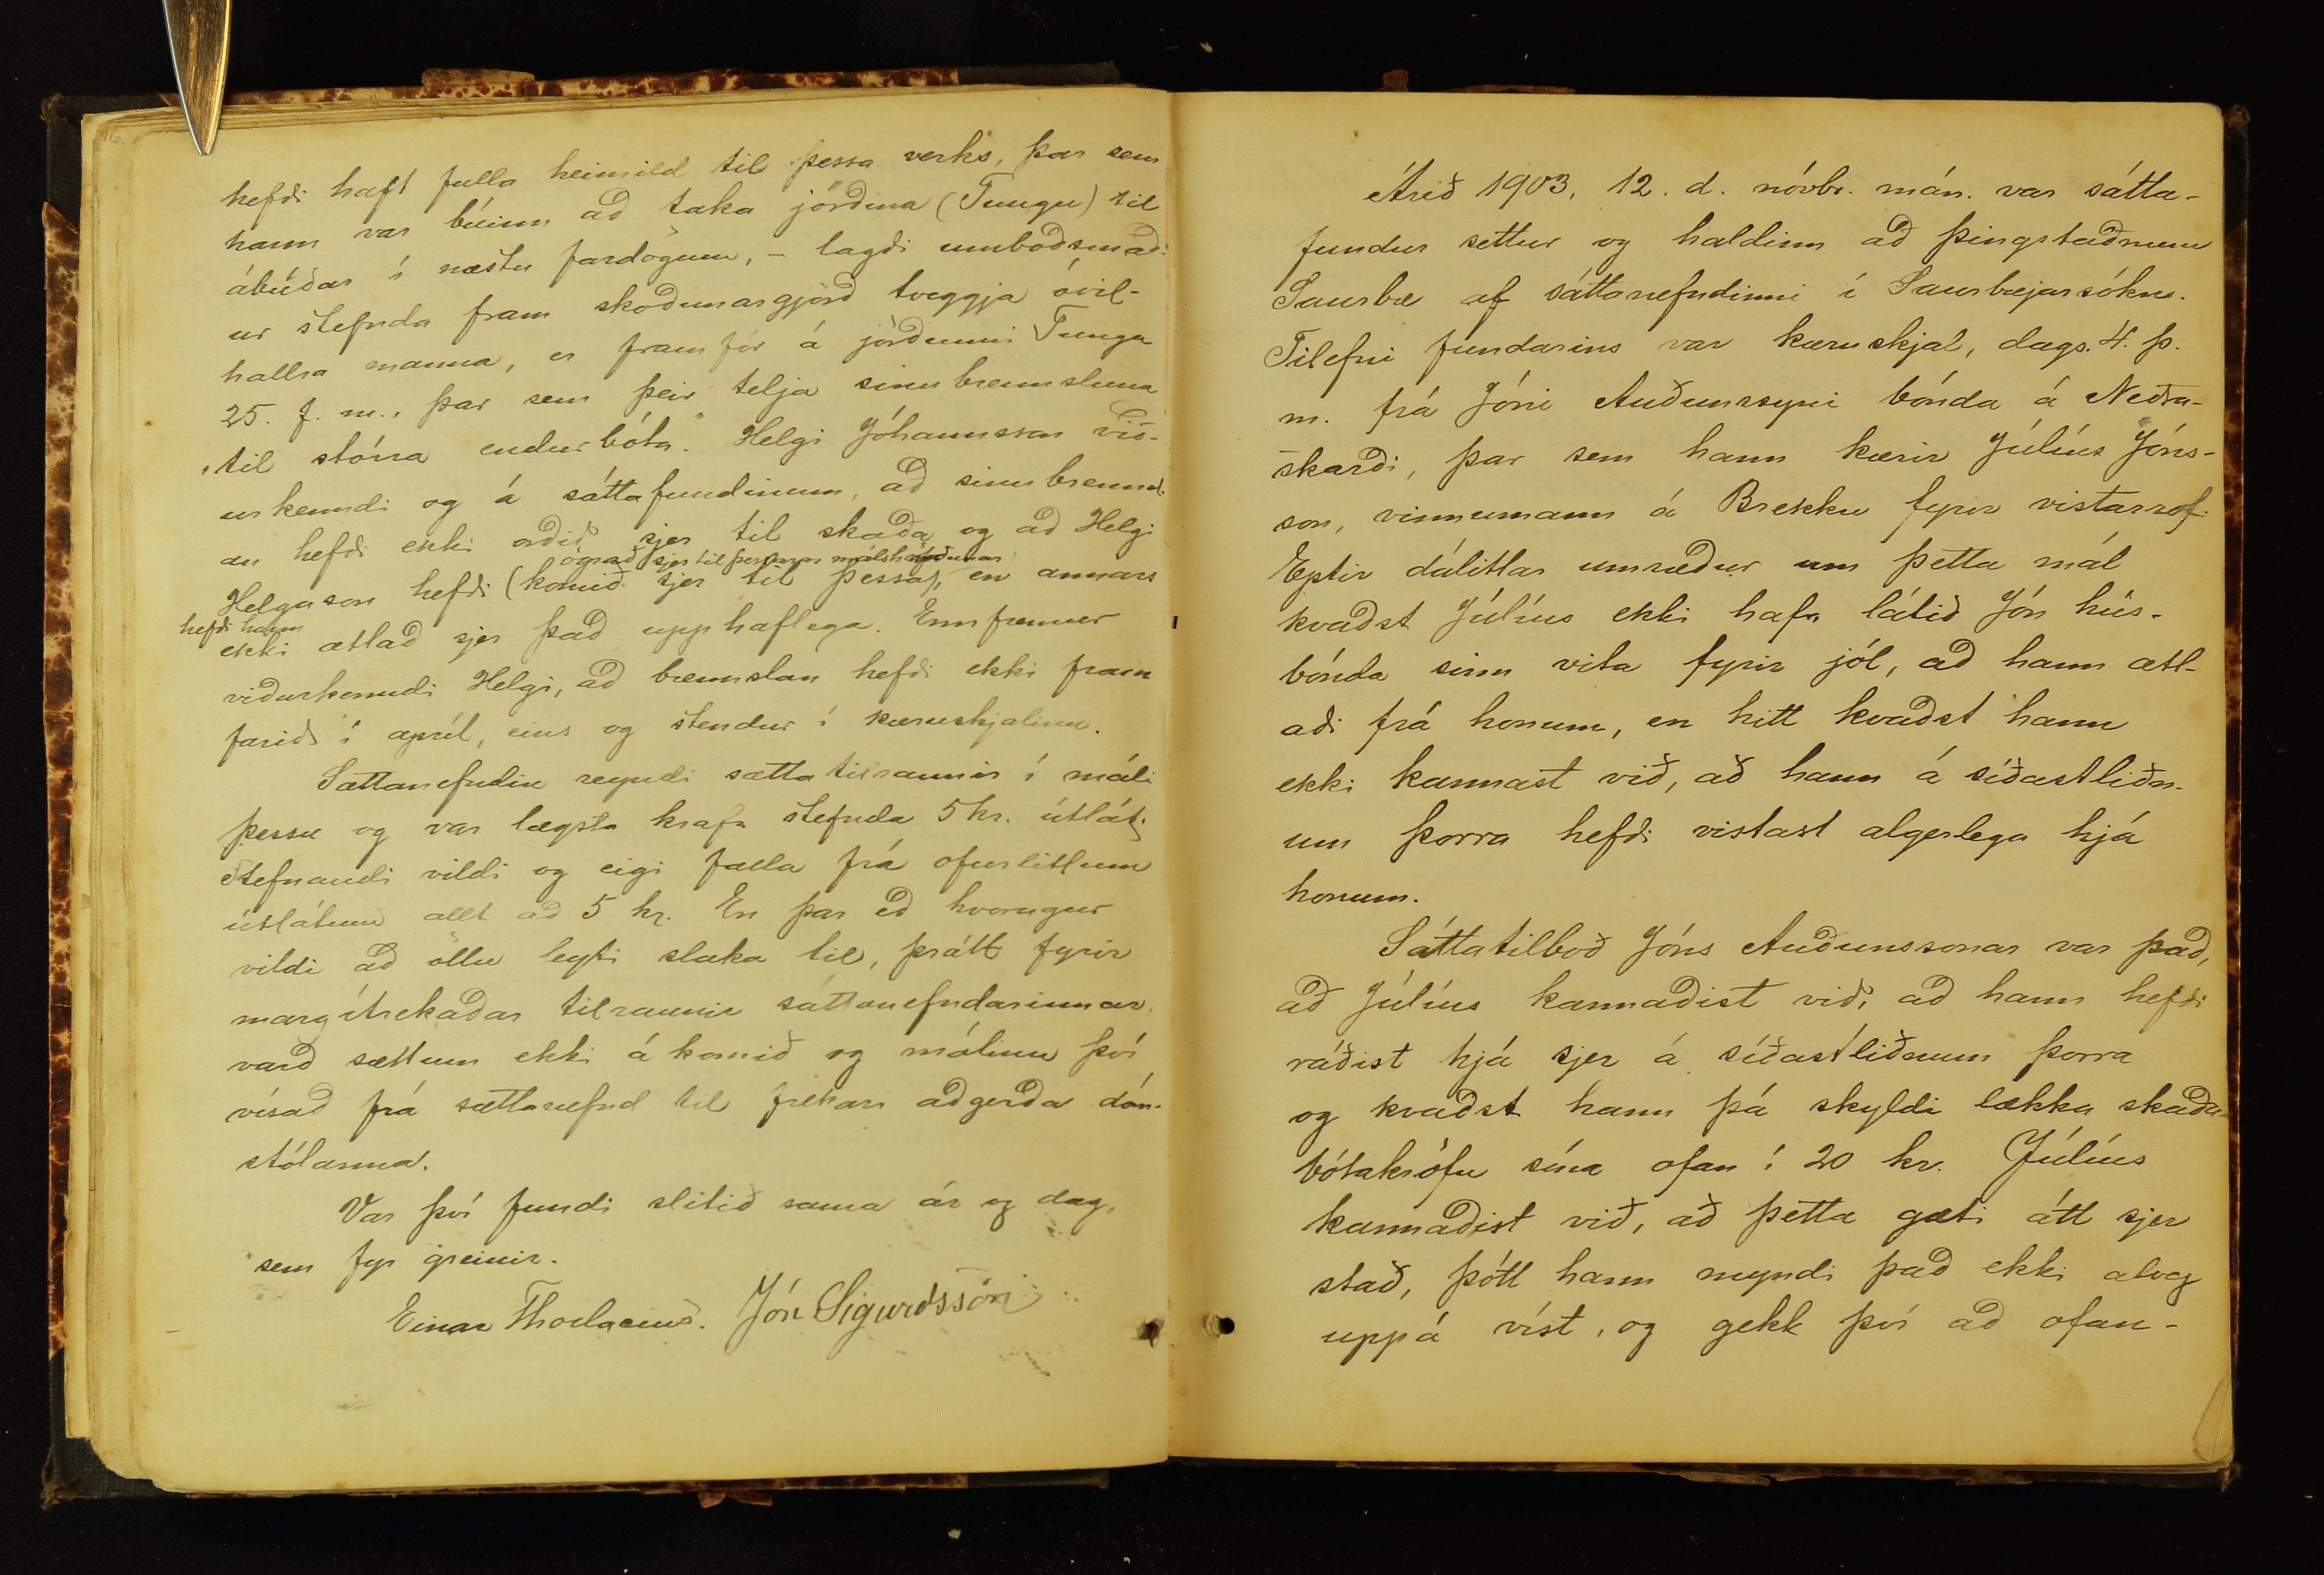 hefði haft fulla heimild til þessa verks, þar sem
hann var búinn að taka jörðina (Tungu) til
ábúðar í næstu fardögum, - lagði umboðsmað-
ur stefnda fram skoðunargjörð tveggja óvil-
hallra manna, er fram fór á jörðunni Tunga
25. f. m., þar sem þeir telja sinubrennsluna
„til stórra endurbóta." Helgi Jóhannsson við-
urkenndi og á sáttafundinum, að sinubrennsl-
an hefði ekki orðið sjer til skaða og að Helgi
ógnað sjer til þessarar málshöfðunar
Helgason hefði (komið sjer til þessa), en annars
hefði hann
ekki ætlað sjer það upphaflega. Ennfremur
viðurkenndi Helgi, að brennslan hefði ekki fram
farið í apríl, eins og stendur í kæruskjalinu.
Sáttanefndin reyndi sáttatilraunir í máli
þessu og var lægsta krafa stefnda 5 kr. útlát;
Stefnandi vildi og eigi falla frá ofurlitlum
útlátum allt að 5 kr. En þar eð hvorugur
vildi að öllu leyti slaka til, þrátt fyrir
margítrekaðar tilraunir sáttanefndarinnar,
varð sættum ekki á komið og málinu því
vísað frá sáttanefnd til frekari aðgerða dóm-
stólanna.
Var því fundi slitið sama ár og dag,
sem fyr greinir.
Einar Thorlacius. Jón Sigurdsson
Árið 1903, 12. d. nóvbr. mán. var sátta-
fundur settur og haldinn að þingstaðnum
Saurbæ af sáttanefndinni í Saurbæjarsókn.
Tilefni fundarins var kæruskjal, dags. 4. þ.
m. frá Jóni Auðunssyni bónda á Neðra-
skarði, þar sem hann kærir Júlíus Jóns-
son, vinnumann á Brekku fyrir vistarrof.
Eptir dálitlar umræður um þetta mál
kvaðst Júlíus ekki hafa látið Jón hús-
bónda sinn vita fyrir jól, að hann ætl-
aði frá honum, en hitt kvaðst hann
ekki kannast við, að hann á síðastliðn-
um þorra hefði vistast algerlega hjá
honum.
Sáttatilboð Jóns Auðunssonar var það,
að Júlíus kannaðist við, að hann hefði
ráðist hjá sjer á síðastliðnum þorra
og kvaðst hann þá skyldi lækka skaða-
bótakröfu sína ofan í 20 kr. Júlíus
kannaðist við, að þetta gæti átt sjer
stað, þótt hann myndi það ekki alveg
uppá víst, og gekk því að ofan-